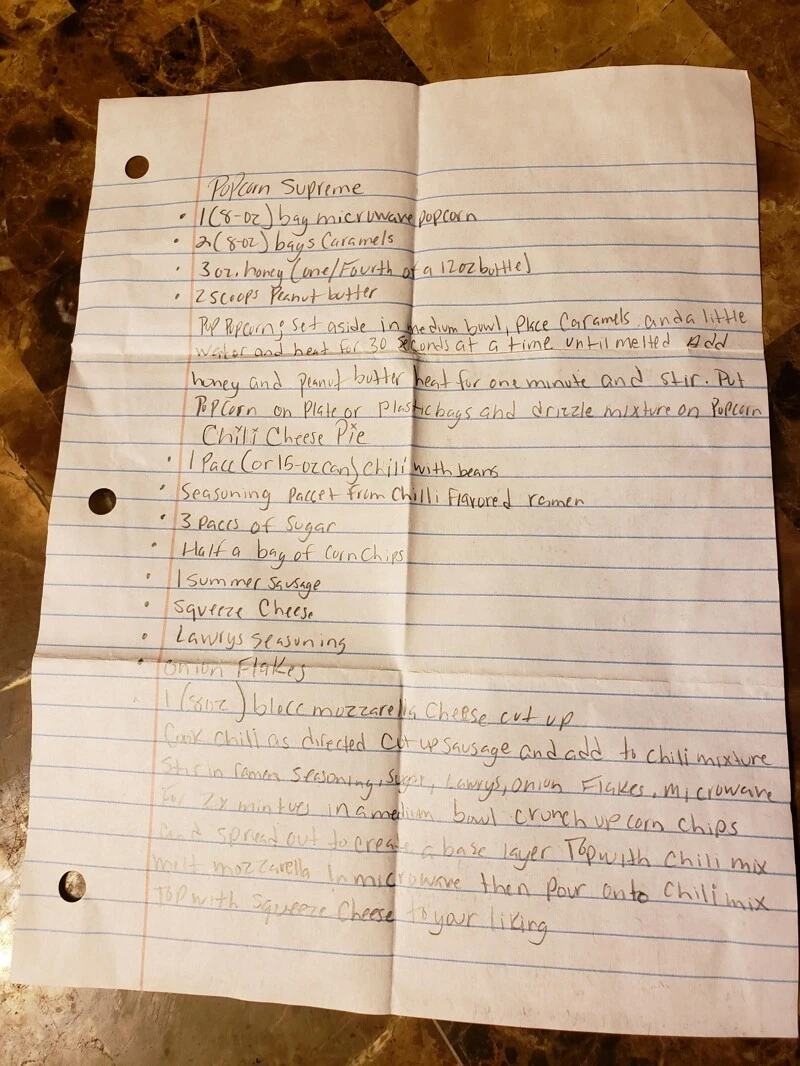 Popcorn Supreme
• 1 (8-oz) bag microwave popcorn
• 2 (8-oz) bags Caramels
• 3 oz. honey (one/Fourth of a 12oz bottle)
• 2 scoops Peanut butter
Pop Popcorn; set aside in medium bowl, Place Caramels and a little
water and heat for 30 seconds at a time until melted Add
honey and peanut butter heat for one minute and stir. Put
Popcorn on Plate or Plastic bags and drizzle mixture on Popcorn
Chili Cheese Pie
• 1 Pacc (or 15-oz can) Chili with beans
• Seasoning Paccet from Chilli Flavored ramen
• 3 Paccs of Sugar
• Half a bag of Corn Chips
• 1 Summer Sausage
• Squeeze Cheese
• Lawrys Seasoning
• Onion Flakes
1 (8oz) blocc mozzarella Cheese cut up
Cook Chili as directed Cut up Sausage and add to Chili mixture
Stir in ramen Seasoning, Sugar, Lawrys, Onion Flakes. Microwave
For 2 mintues in a medium bowl crunch up corn chips
and spread out to create a base layer Top with Chili mix
melt mozzarella in microwave then pour onto Chili mix
Top with Squeeze Cheese to your liking